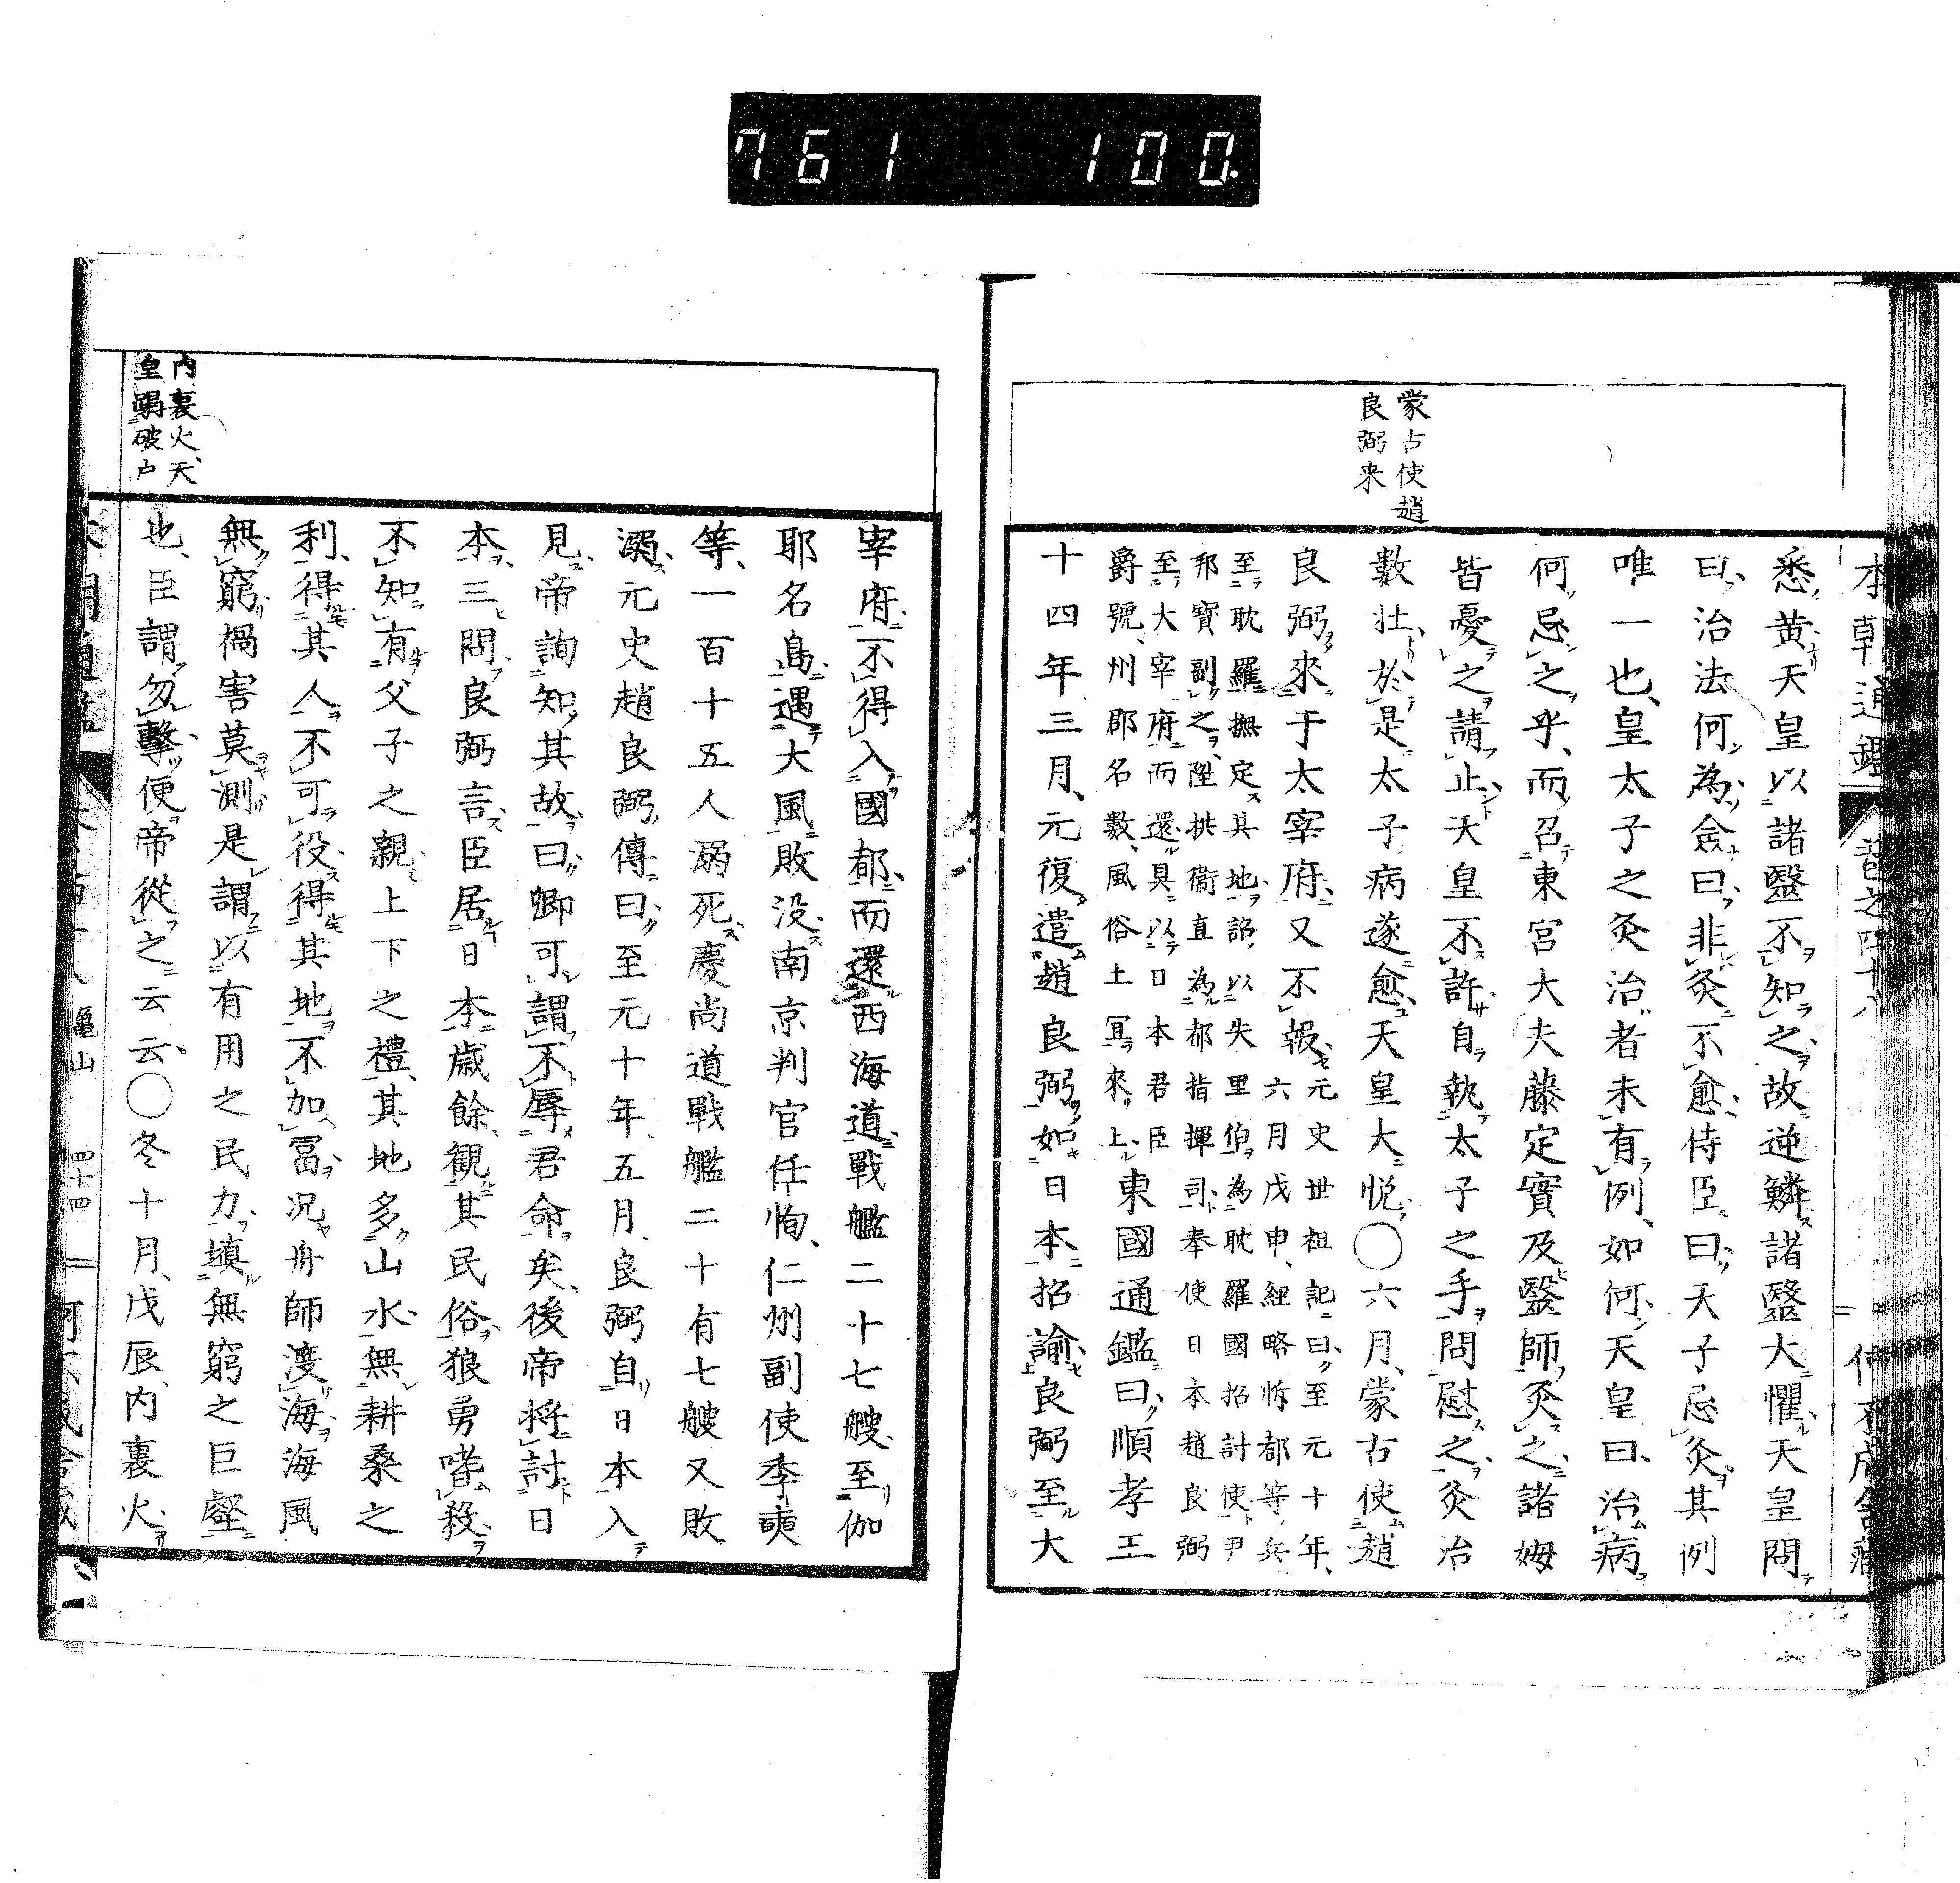 761 100.
蒙古使趙
良弼来
悉黄天皇以諸醫不知之故逆鱗諸醫大懼天皇問
曰治法何為僉曰非灸不愈侍臣曰天子忌灸其例
唯一也皇太子之灸治者未有例如何天皇曰治病
何忌之乎而召東宮大夫藤定實及醫師灸之諸姆
皆憂之請止天皇不許自執太子之手問慰之灸治
數壯於是太子病遂愈天皇大悦〇六月蒙古使趙
良弼來于太宰府又不報元史世祖記曰至元十年
六月戊申經略忻都等兵
至耽羅撫定其地詔以失里伯為耽羅國招討使尹
邦寶副之陞拱衞直為都指揮司奉使日本趙良弼
至大宰府而還具以日本君臣
爵號州郡名數風俗土冝來上東國通鑑曰順孝王
十四年三月元復遣趙良弼如日本招諭良弼至大
内裏火天
皇蹋破户
宰府不得入國都而還西海道戰艦二十七艘至伽
耶名島遇大風敗没南京判官任恂仁州副使李
等一百十五人溺死慶尚道戰艦二十有七艘又敗
溺元史趙良弼傳曰至元十年五月良弼自日本入
見帝詢知其故曰卿可謂不辱君命矣後帝将討日
本三問良弼言臣居日本歳餘觀其民俗狼勇嗜殺
不知有父子之親上下之禮其地多山水無耕桑之
利得其人不可役得其地不加冨况舟師渡海海風
無窮禍害莫測是謂以有用之民力塡無窮之巨壑
也臣謂勿擊便帝從之云云〇冬十月戊辰内裏火
本朝通鑑 亀山 四十四